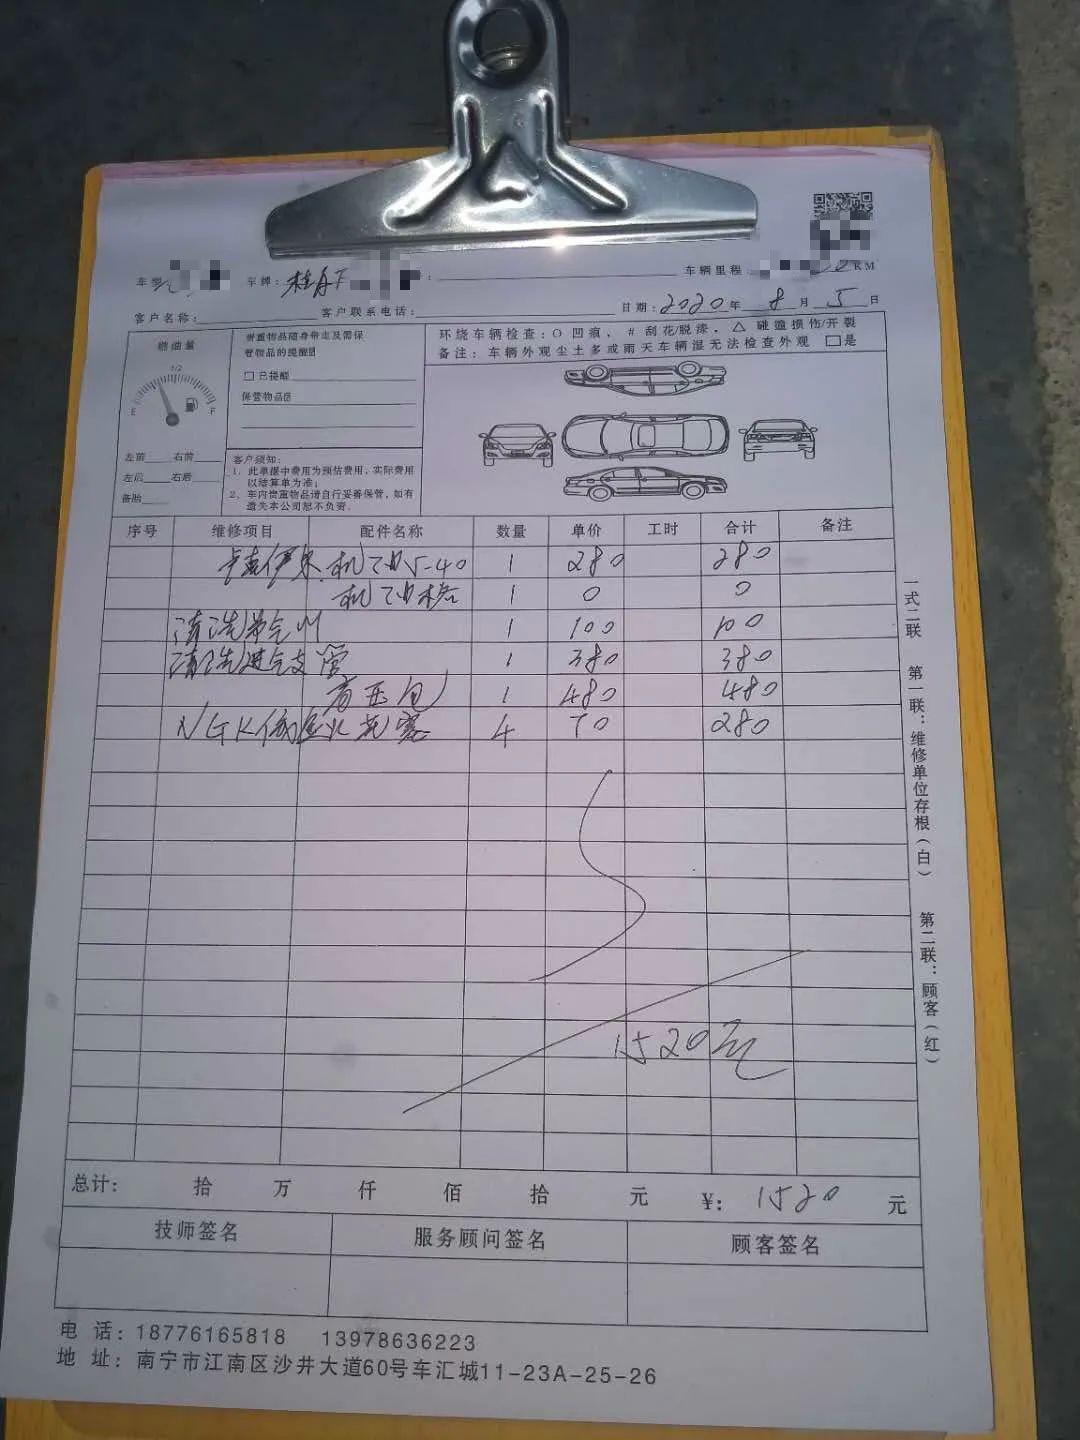 车型 车牌: 桂A 车辆里程: KM
客户名称: 客户联系电话: 日期: 2020 年 8 月 5 日
燃油量
1/2
E F
左前 右前
左后 右后
备胎
贵重物品随身带走及需保
管物品的提醒
□ 已提醒
保管物品
客户须知:
1、此单据中费用为预估费用,实际费用
以结算单为准;
2、车内贵重物品请自行妥善保管,如有
遗失本公司恕不负责.
环绕车辆检查:O 凹痕、# 刮花/脱漆、△ 碰撞损伤/开裂
备注:车辆外观尘土多或雨天车辆湿无法检查外观 □是
序号 维修项目 配件名称 数量 单价 工时 合计 备注
机油5-40 1 280 280
机油格 1 0 0
清洗节气门 1 100 100
清洗进气支管 1 380 380
1 480 480
NGK 火花塞 4 70 280
1520元
总计: 拾 万 仟 佰 拾 元 ¥: 1520 元
技师签名 服务顾问签名 顾客签名
电 话:18776165818 13978636223
地 址:南宁市江南区沙井大道60号车汇城11-23A-25-26
一式二联 第一联:维修单位存根(白) 第二联:顾客(红)